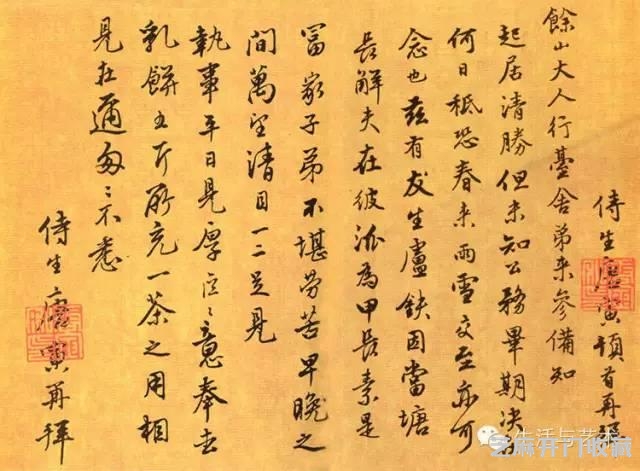 侍生唐寅頓首再拜
餘山大人行臺舍弟来參備知
起居清勝但未知公務畢期決於
何日秪恐春来雨雪交至亦可
念也茲有友生盧鈇因當塘
長解夫在彼派為甲長素是
富家子弟不堪勞苦早晚之
間萬望清目一二足見
執事平日見厚區〻意奉去
乳餅五斤聊充一茶之用相
見在邇匆〻不悉
侍生唐寅再拜
生活与艺术
芝麻开门收藏